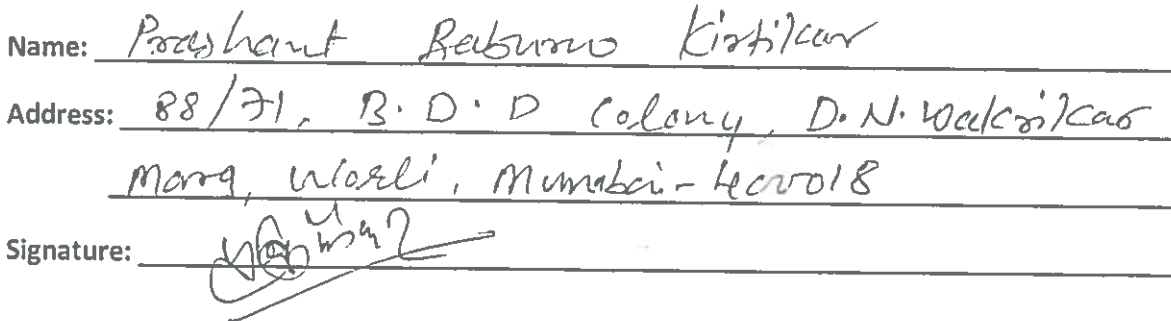 Name: Prashant Baburao Kirtikar
Address: 88/71, B.D.D Colony, D.N. Wakrikar
Marg, Worli, Mumbai-400018
Signature: